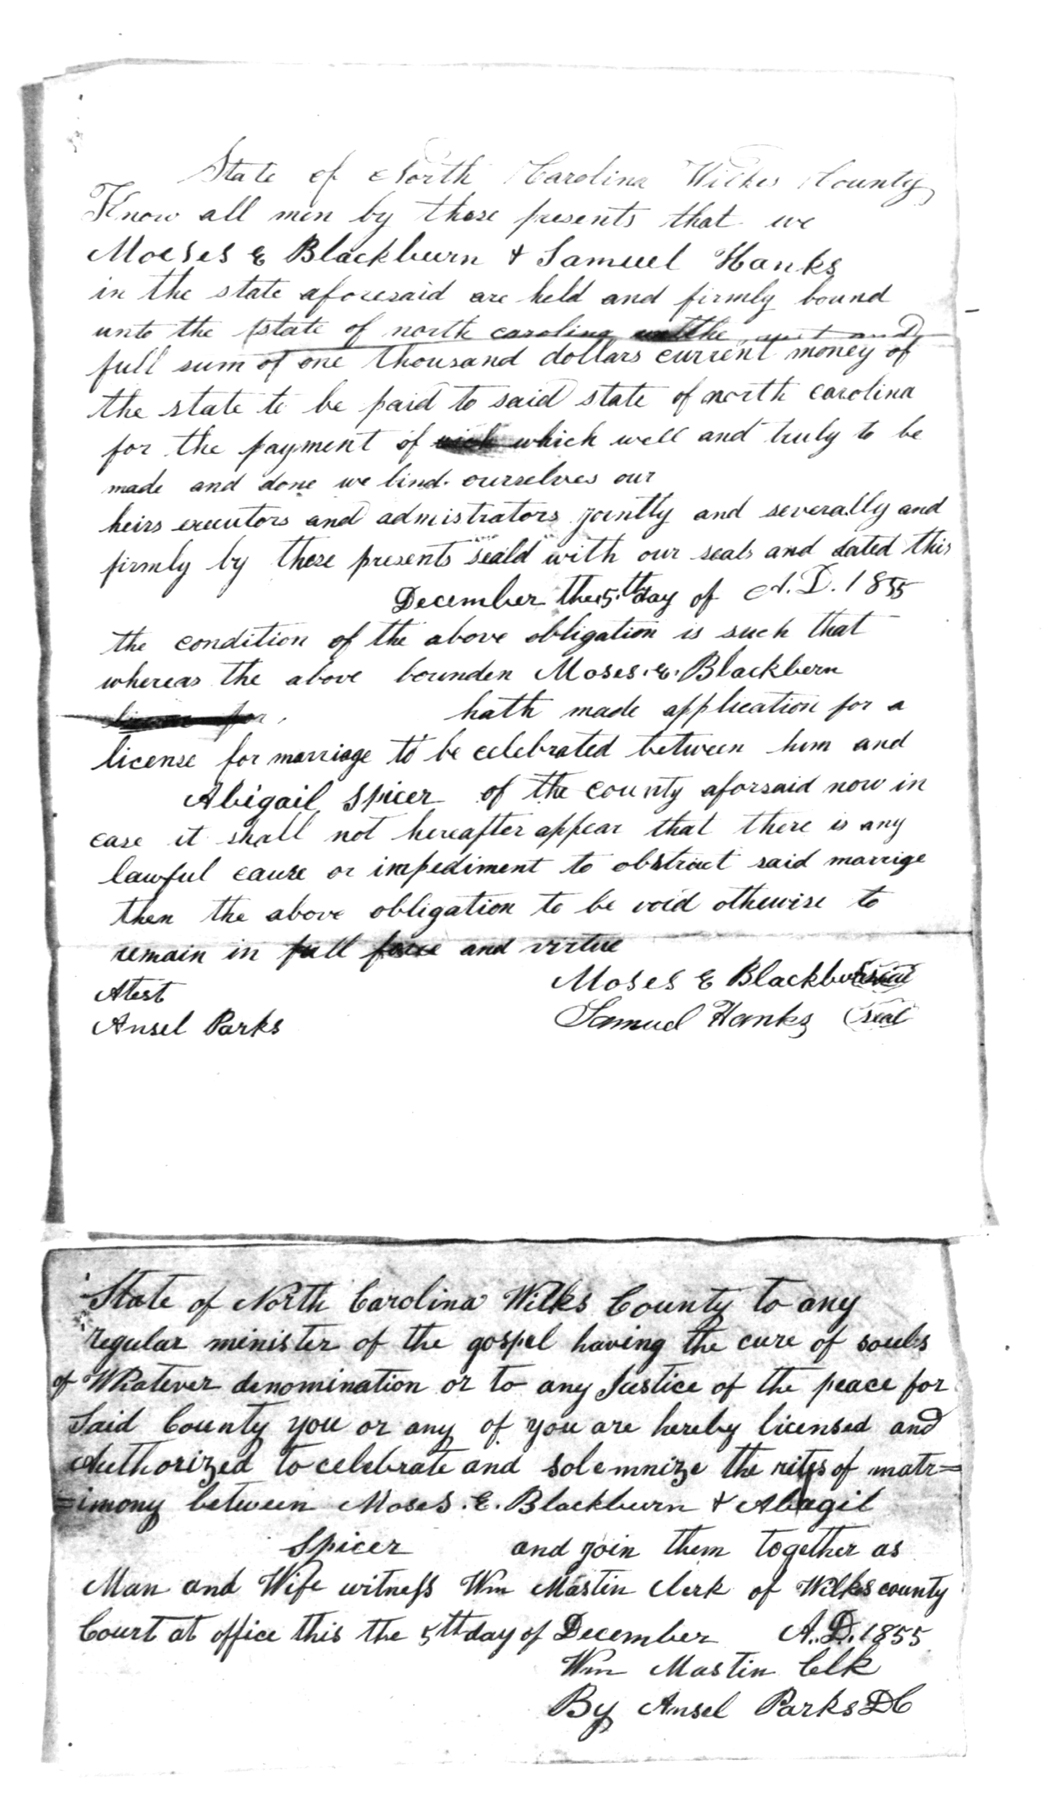 State of North Carolina Wilkes County
Know all men by these presents that we
Moeses E Blackburn & Samuel Hanks
in the state aforesaid are held and firmly bound
unto the state of north carolina the
full sum of one thousand dollars current money of
the state to be paid to said state of north carolina
for the payment of which well and truly to be
made and done we bind ourselves our
heirs executors and admistrators jointly and severally and
firmly by these presents seald with our seals and dated this
December the 5th day of A.D. 1855
the condition of the above obligation is such that
whereas the above bounden Moses. E. Blackbern
hath made application for a
license for marriage to be celebrated between him and
Abigail Spicer of the county aforsaid now in
case it shall not hereafter appear that there is any
lawful cause or impediment to obstruct said marrige
then the above obligation to be void othewise to
remain in full force and virtue
Moses E Blackburn seal
Atest
Samuel Hanks seal
Ansel Parks
State of North Carolina Wilks County to any
regular minister of the gospel having the cure of souls
of Whatever denomination or to any Justice of the peace for
Said County you or any of you are hereby licensed and
Authorized to celebrate and solemnize the rites of matr=
=imony between Moses. E. Blackburn & Abagil
Spicer and join them together as
Man and Wife witness Wm Mastin Clerk of Wilks county
Court at office this the 5th day of December A.D. 1855
Wm Mastin Clk
By Ansel Parks DC